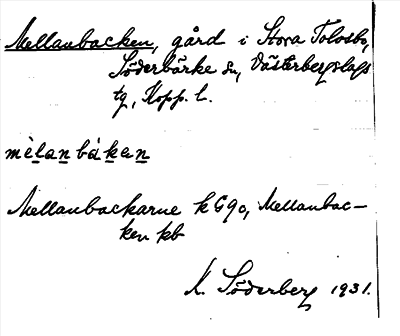 Mellanbacken, gård i Stora Tolvsbo,
Söderbärke sn, Västerbergslags
tg, Kopp. l.
mèlanbákan
Mellanbackarne kG90, Mellanbac-
ken kb
K. Söderberg 1931.